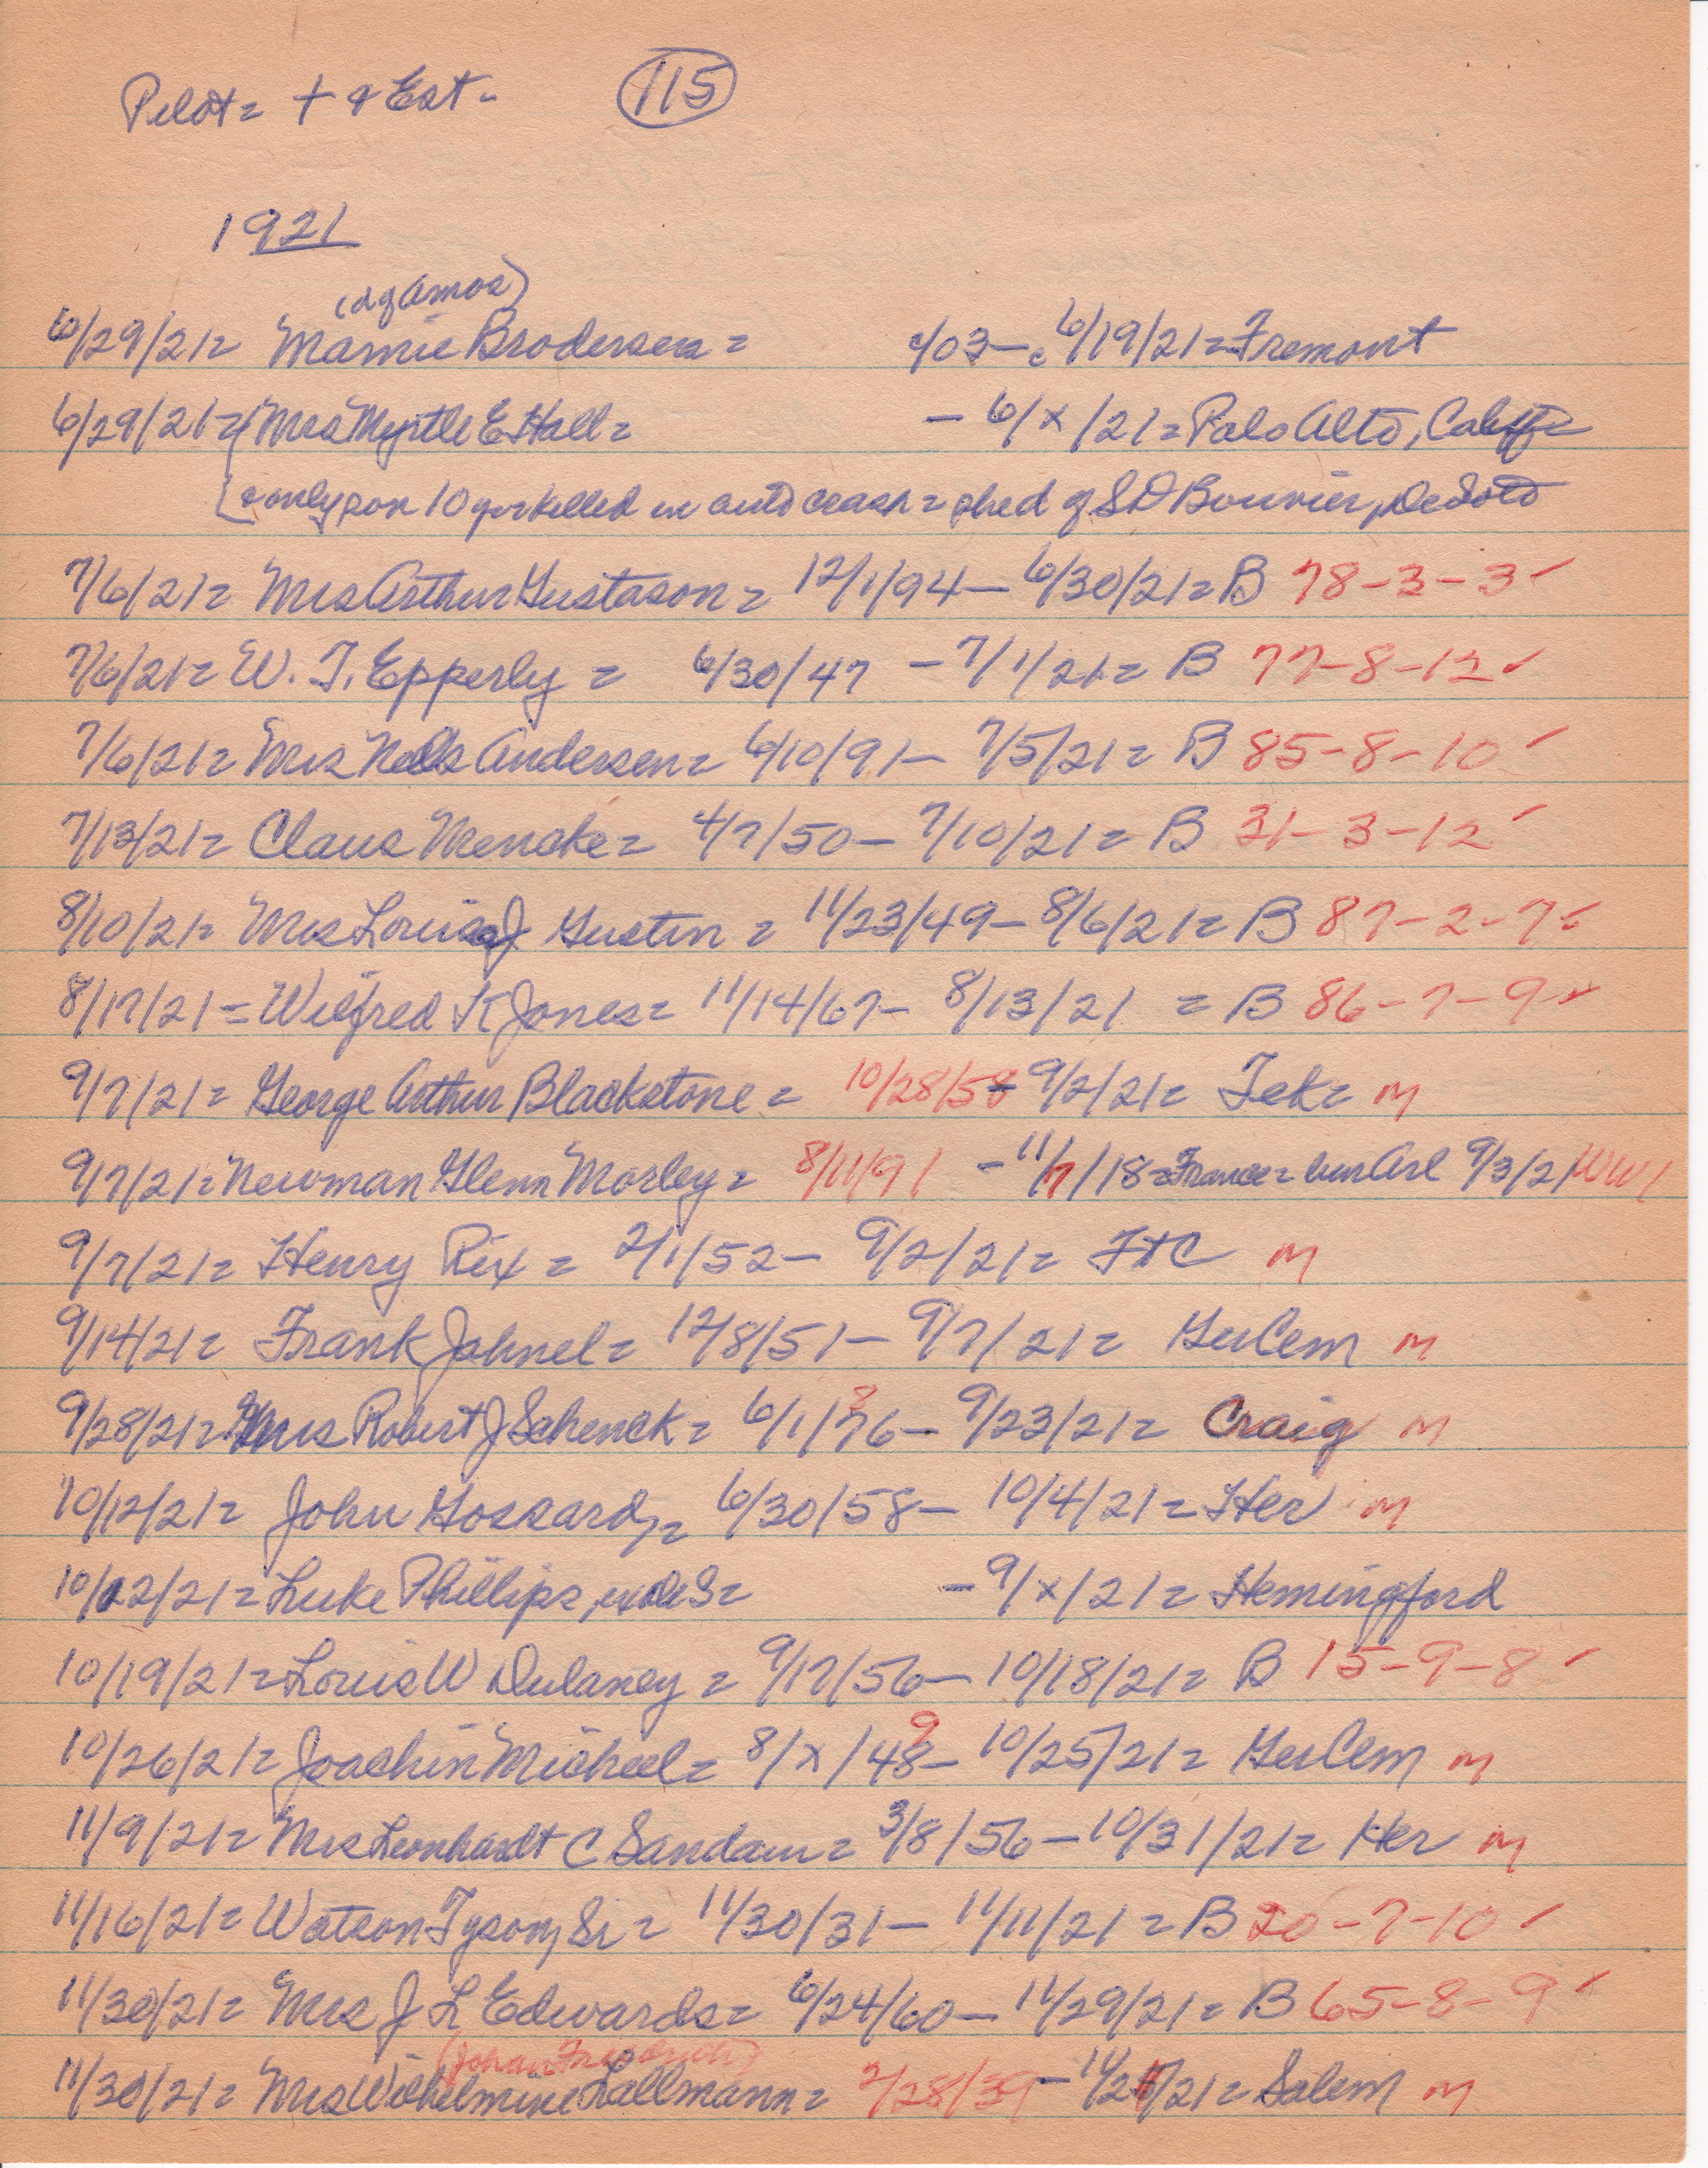 Pilot= + & Ent- 115
1921
(d of Amos)
6/29/21= Mamie Brodersen = c/03 - c 6/19/21= Fremont
6/29/21= Mrs Myrtle E Hall= - 6/x/21= Palo Alto, Calif=
& only son 10 yr killed in auto crash = sister of S D Bouvier, DeSoto
7/6/21= Mrs Arthur Gustason= 12/1/94- 6/30/21= B 78-3-3✓
7/6/21= W. T. Epperly = 6/30/47 - 7/1/21= B 77-8-12✓
7/6/21= Mrs Nels Andersen= 6/10/91- 7/5/21= B 85-8-10✓
7/13/21= Claus Mencke= 4/7/50- 7/10/21= B 31-3-12✓
8/10/21= Mrs Louisa J Gustin = 11/23/49- 8/6/21= B 87-2-7✓
8/17/21= Wilfred K Jones= 11/14/67- 8/13/21 = B 86-7-9✓
9/7/21= George Arthur Blackstone = 10/28/58- 9/2/21= Tek= M
9/7/21= Newman Glenn Morley= 8/11/91 - 11/7/18=France= bur Arl 9/3/21 WW1
9/7/21= Henry Rix = 2/1/52- 9/2/21= FtC M
9/14/21= Frank Jahnel= 12/8/51- 9/7/21= GerCem M
9/28/21= Mrs Robert J Schenck= 6/1/76- 8 9/23/21= Craig M
10/12/21= John Gossard,= 6/30/58- 10/4/21= Her M
10/12/21= Luke Phillips, ex DeS= - 9/x/21= Hemingford
10/19/21= Louis W Dulaney = 9/17/56- 10/18/21= B 15-9-8✓
10/26/21= Joachin Micheel= 8/x/48- 9 10/25/21= GerCem M
11/9/21= Mrs Leonhardt C Sandau= 3/8/56- 10/31/21= Her M
11/16/21= Watson Tyson, Sr = 11/30/31- 11/11/21= B 20-7-10✓
11/30/21= Mrs J L Edwards= 6/24/60- 11/29/21= B 65-8-9✓
(Johan Friedrich)
11/30/21= Mrs Wilhelmine Lallmann= 2/28/39- 11/2 /21= Salem M